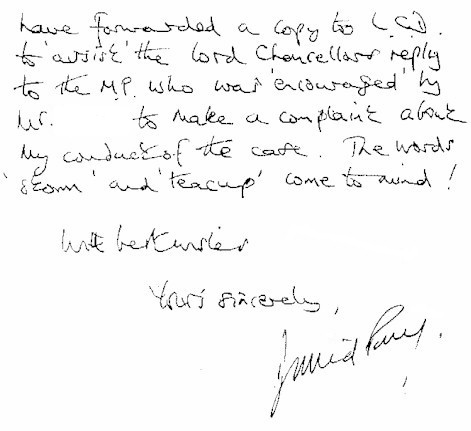 have forwarded a copy to L.C.D.
to 'assist' the Lord Chancellors reply
to the M.P. who was 'encouraged' by
Mr. to make a complaint about
my conduct of the case. The words
'storm' and 'teacup' come to mind!
With best wishes
Yours sincerely,